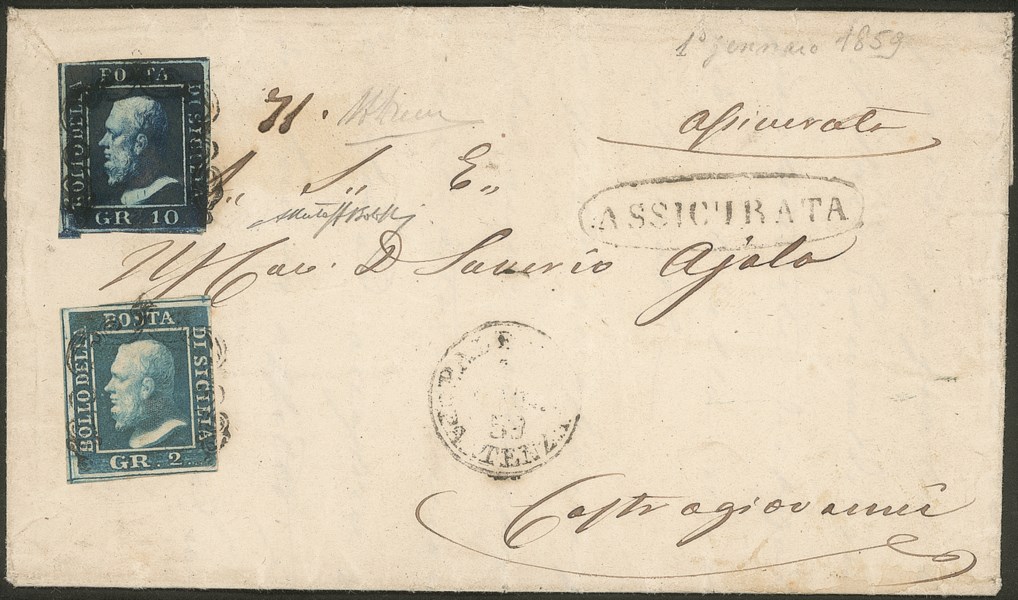 1° gennaio 1859
POSTA
BOLLO DELLA
DI SICILIA
GR 10
71.
Assicurata
A.. S.. E..
ASSICURATA
D Saverio Ajala
POSTA
BOLLO DELLA
DI SICILIA
GR. 2.
59
Castrogiovanni